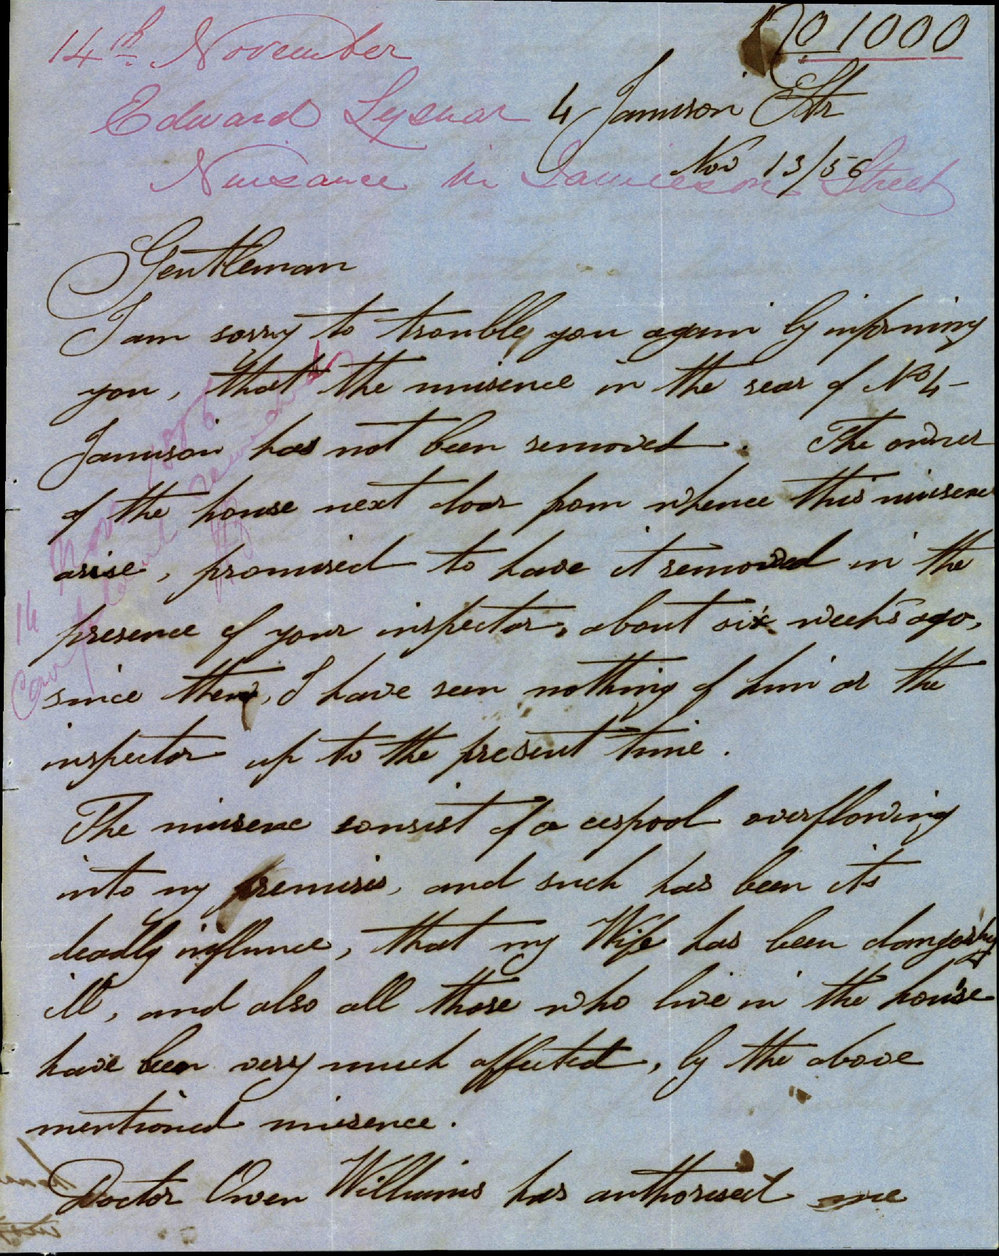 No 1000
14th November
Edward Lysnar
4 Jamison Str
Nov 13/56
Nuisance in Jamieson Street
Gentleman
I am sorry to trouble you again by informing
you, that the nuisence in the rear of No 4
Jamison has not been removed. The owner
of the house next door from whence this nuisence
arise, promised to have it removed in the
presence of your inspector, about six weeks ago,
since then, I have seen nothing of him or the
inspector up to the present time.
The nuisence consist of a cespool overflowing
into my premises, and such has been its
deadly influnce, that my Wife has been
ill, and also all those who live in the house
have been very much affected, by the above
mentioned nuisence.
Doctor Owen Williams has authorised me